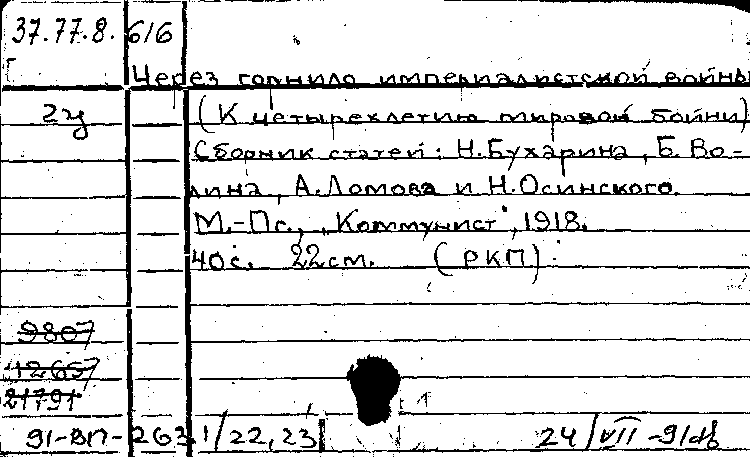 37.77.8. 616
Через горнило империалистской войны
2у
(К четырехлетию мировой бойни)
Сборник статей: Н.Бухарина, Б. Во-
лина, А.Ломова и Н.Осинского.
М.-Пг., "Коммунист", 1918.
40с. 22см. (РКП).
9807
12657
21791
91-ВП-263.1/22,23
24/VII-91